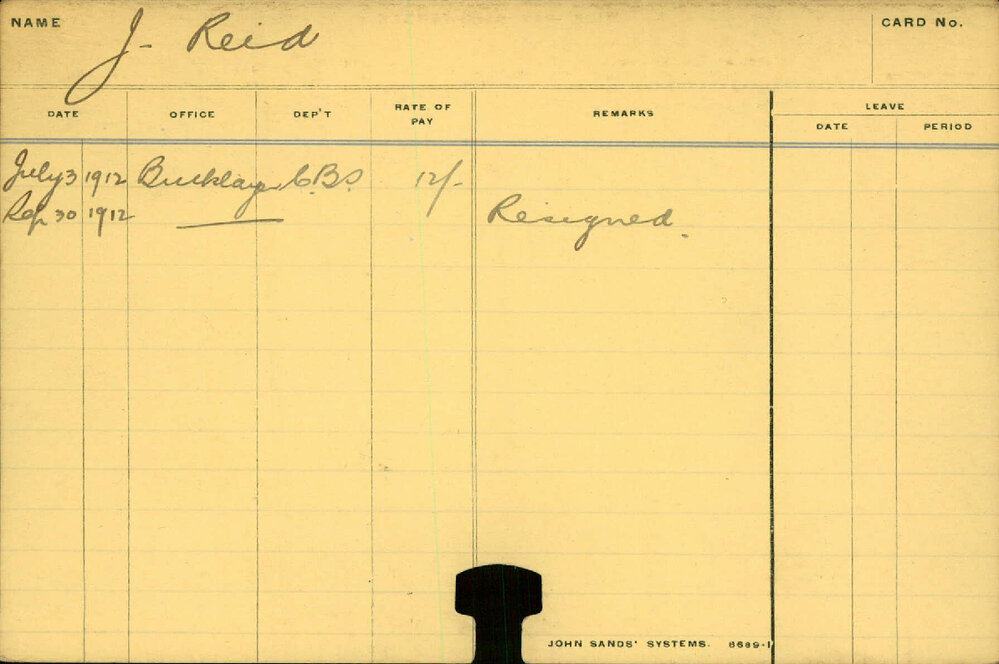 NAME J. Reid CARD No.
DATE OFFICE DEP'T RATE OF PAY REMARKS LEAVE
DATE PERIOD
July 3 1912 12/-
Sep 30 1912 Resigned.
JOHN SANDS' SYSTEMS. 8689-1